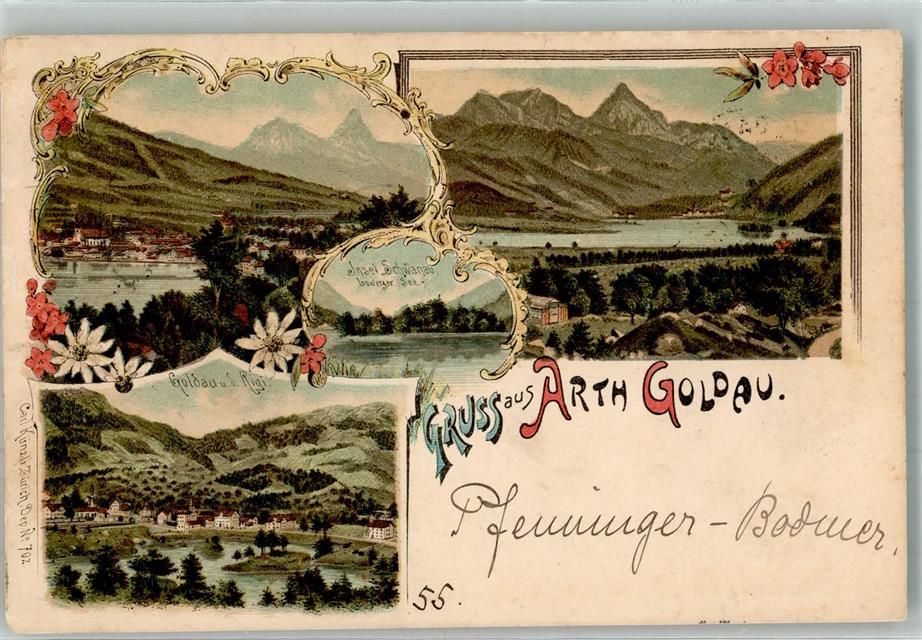 Insel Schwanau
Lowerzer See.
Goldau u. d. Rigi
GRUSS aus ARTH GOLDAU.
Pfenninger - Bodmer.
55.
Carl Künzli Zürich Dep. No 702